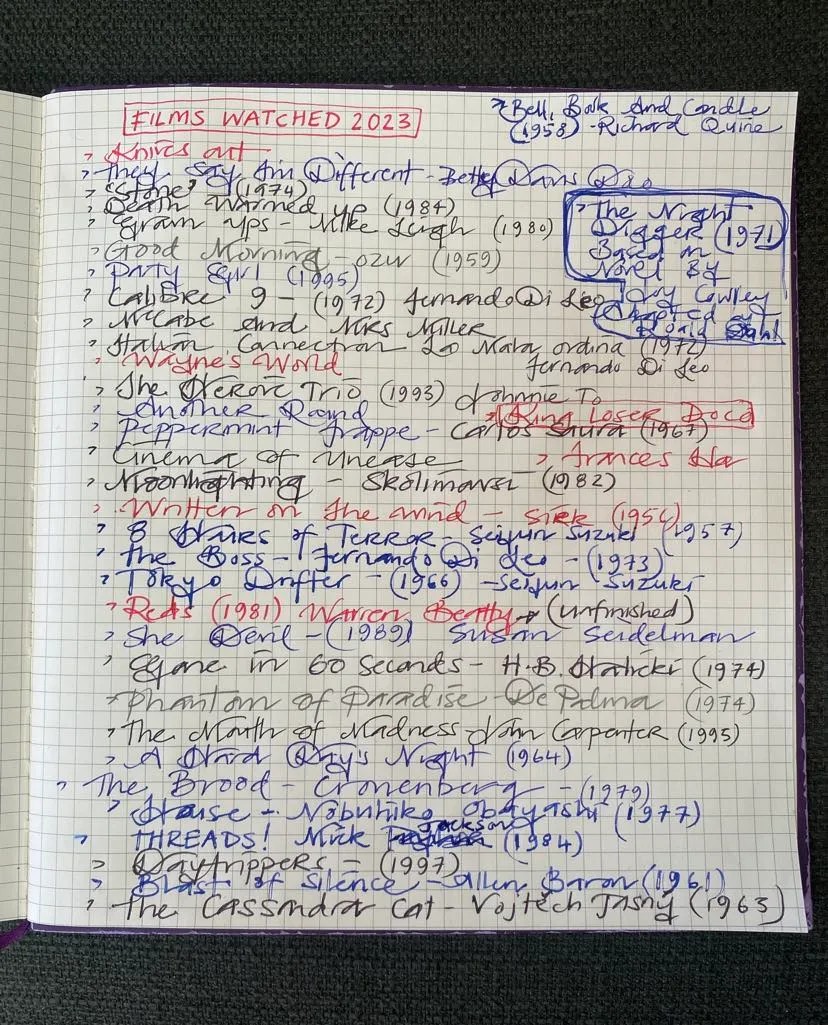 FILMS WATCHED 2023
> Bell, Book And Candle
(1958) - Richard Quine
> Knives out
> They say I'm Different - Betty Davis Doco
> "Stone" (1974)
> Death Warmed up (1984)
> Gram ups - Mike Leigh (1980)
> Good Morning - ozu (1959)
> Party Girl (1995)
> Calibre 9 - (1972) Fernando Di Leo
> McCabe And Mrs Miller
> Italian Connection La Mala ordina (1972)
Fernando Di Leo
> The Night
Digger (1971)
Based on
Novel By
Joy Cowley
Adapted by
Roald Dahl
> Wayne's World
> The Heroic Trio (1993) Johnnie To
> Another Round
> King Loser Doco
> Peppermint frappe - Carlos Saura (1967)
> Cinema of Unease
> Frances Ha
> Moonlighting - Skolimowsi (1982)
> Written on The wind - Sirk (1956)
> 8 Hours of Terror - Seijun Suzuki (1957)
> The Boss - Fernando Di Leo - (1973)
> Tokyo Drifter - (1966) - Seijun Suzuki
> Reds (1981) Warren Beatty → (unfinished)
> She Devil - (1989) Susan Seidelman
> Gone in 60 Seconds - H.B. Halicki (1974)
> Phantom of Paradise - De Palma (1974)
> The Mouth of Madness - John Carpenter (1995)
> A Hard Day's Night (1964)
> The Brood - Cronenberg - (1979)
> House - Nobuhiko Obayashi (1977)
> THREADS! Mick Jackson (1984)
> Daytrippers - (1997)
> Blast of Silence - Allen Baron (1961)
> The Cassandra Cat - Vojtech Jasný (1963)